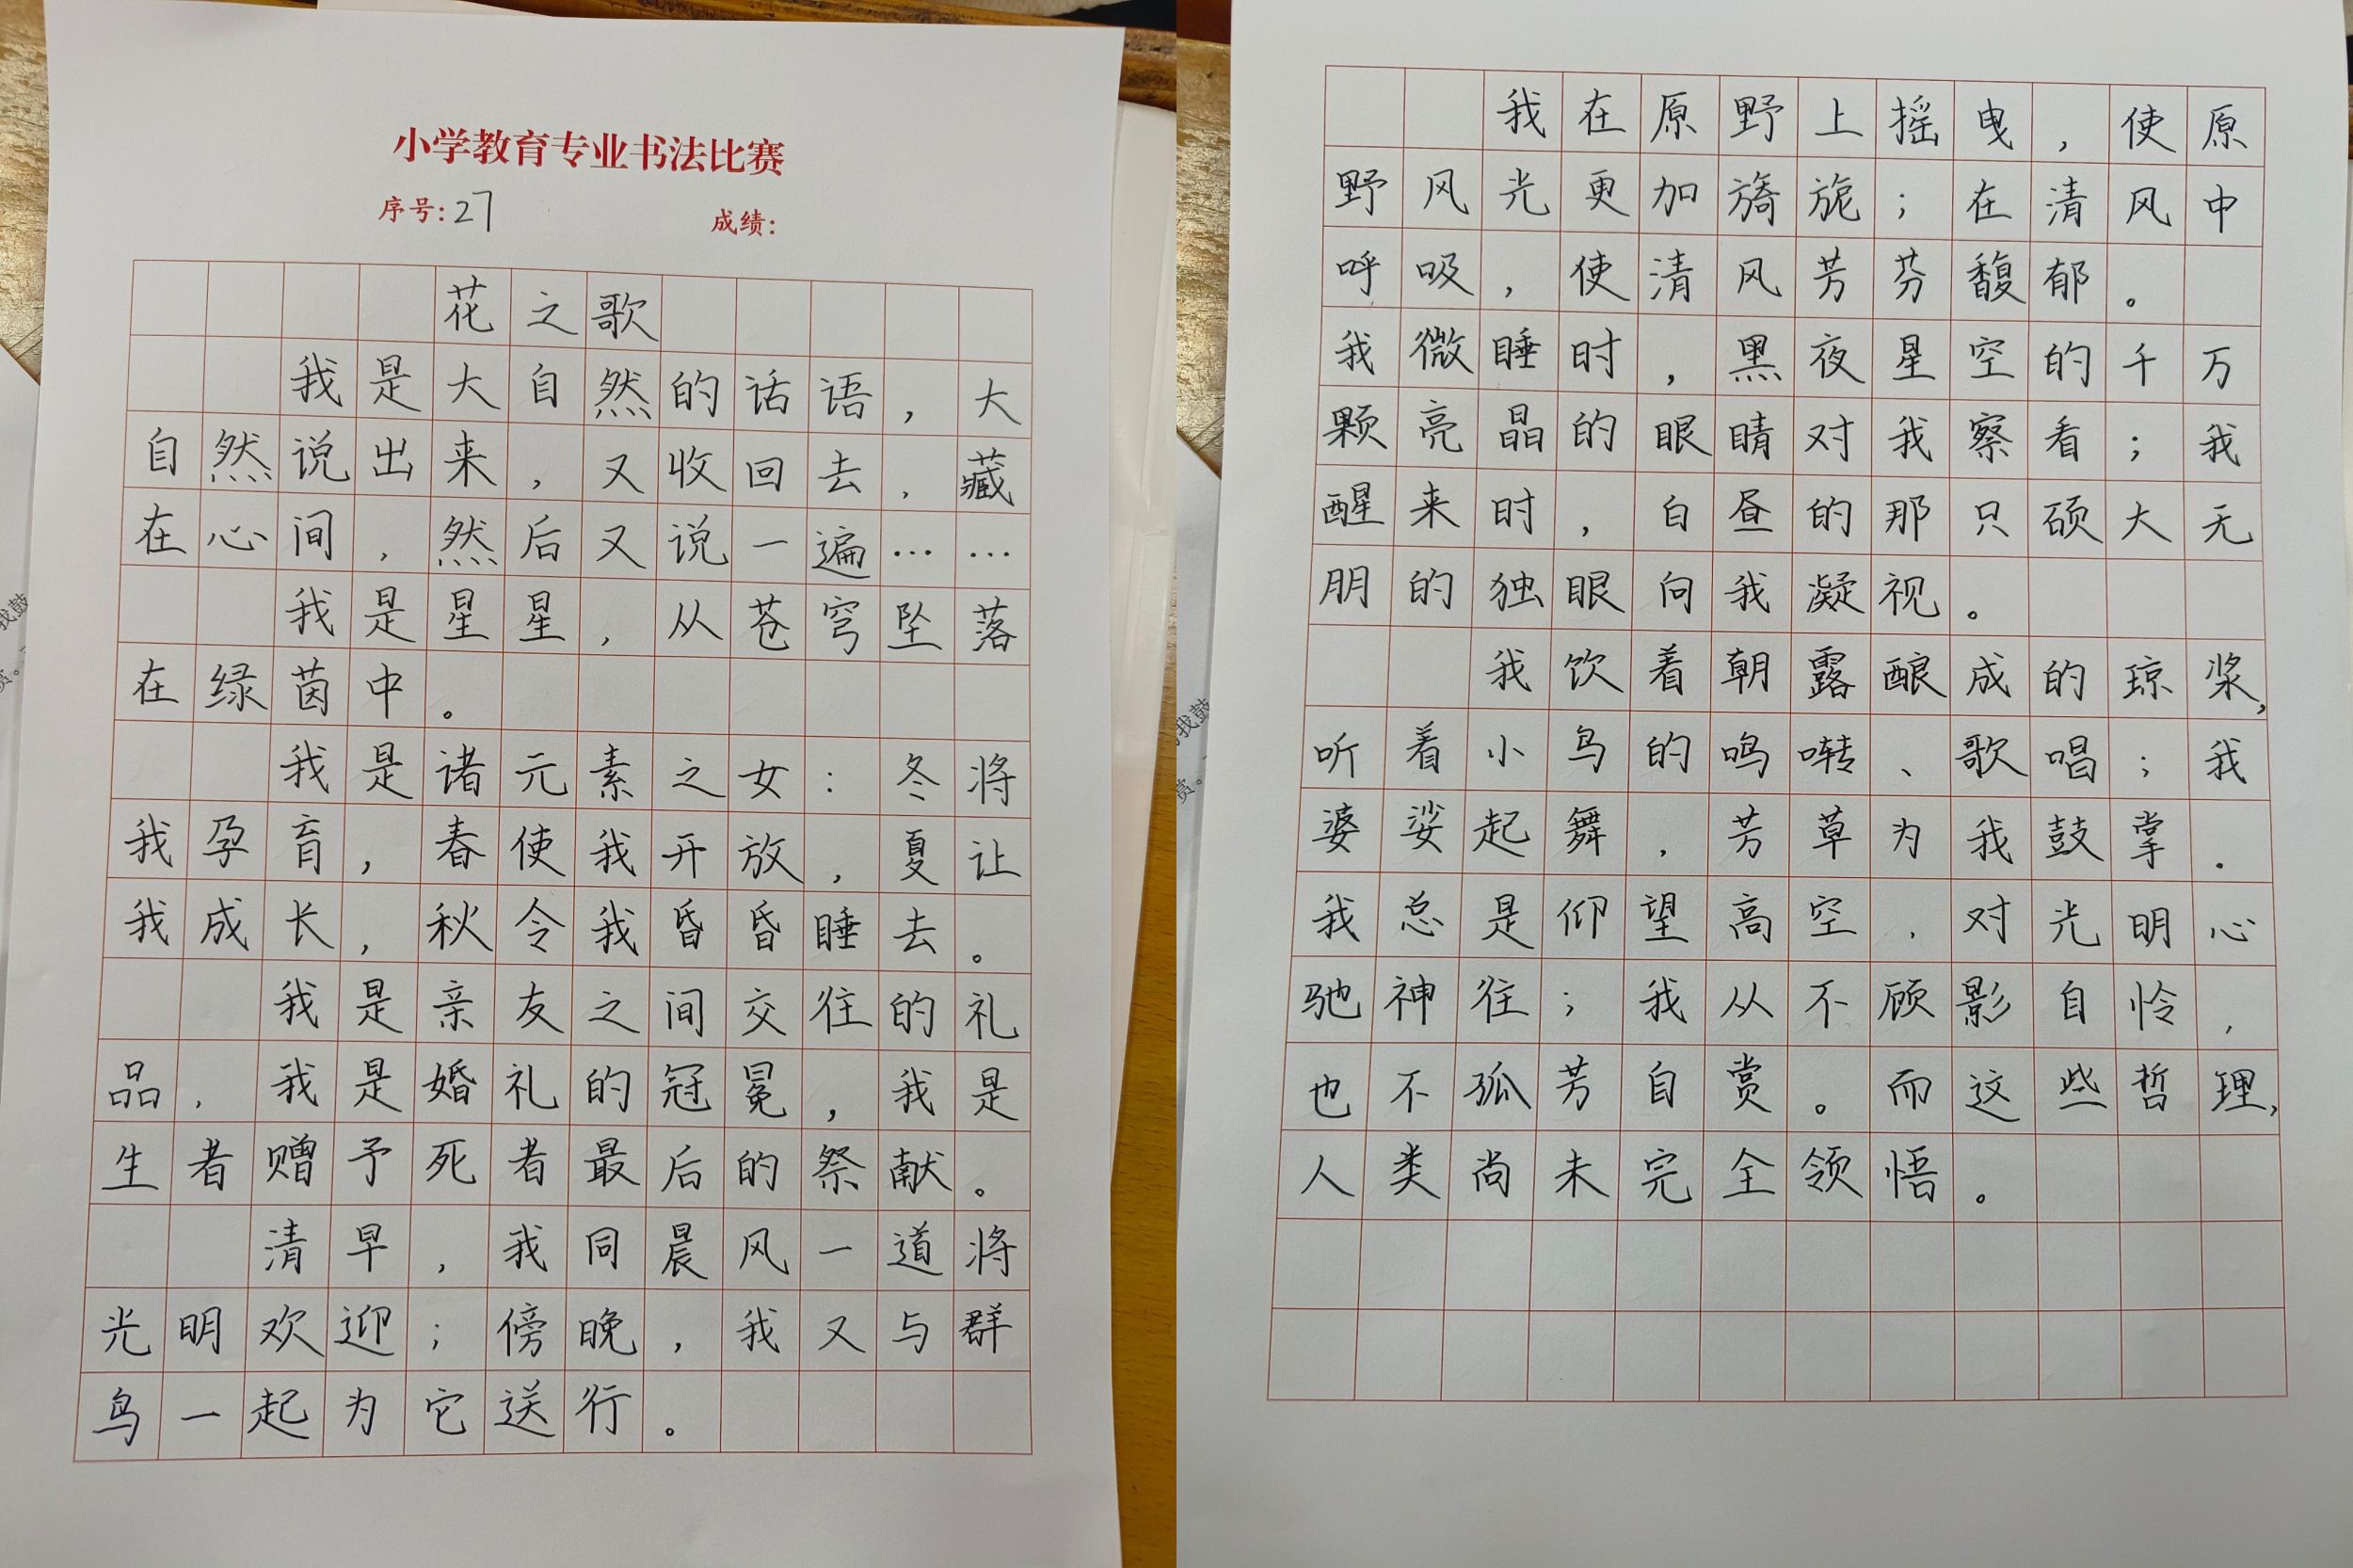 小学教育专业书法比赛
序号:27 成绩:
花之歌
我是大自然的话语,大
自然说出来,又收回去,藏
在心间,然后又说一遍……
我是星星,从苍穹坠落
在绿茵中。
我是诸元素之女:冬将
我孕育,春使我开放,夏让
我成长,秋令我昏昏睡去。
我是亲友之间交往的礼
品,我是婚礼的冠冕,我是
生者赠予死者最后的祭献。
清早,我同晨风一道将
光明欢迎;傍晚,我又与群
鸟一起为它送行。
我在原野上摇曳,使原
野风光更加旖旎;在清风中
呼吸,使清风芳芬馥郁。
我微睡时,黑夜星空的千万
颗亮晶的眼睛对我察看;我
醒来时,白昼的那只硕大无
朋的独眼向我凝视。
我饮着朝露酿成的琼浆,
听着小鸟的鸣啭、歌唱;我
婆娑起舞,芳草为我鼓掌。
我总是仰望高空,对光明心
驰神往;我从不顾影自怜,
也不孤芳自赏。而这些哲理,
人类尚未完全领悟。